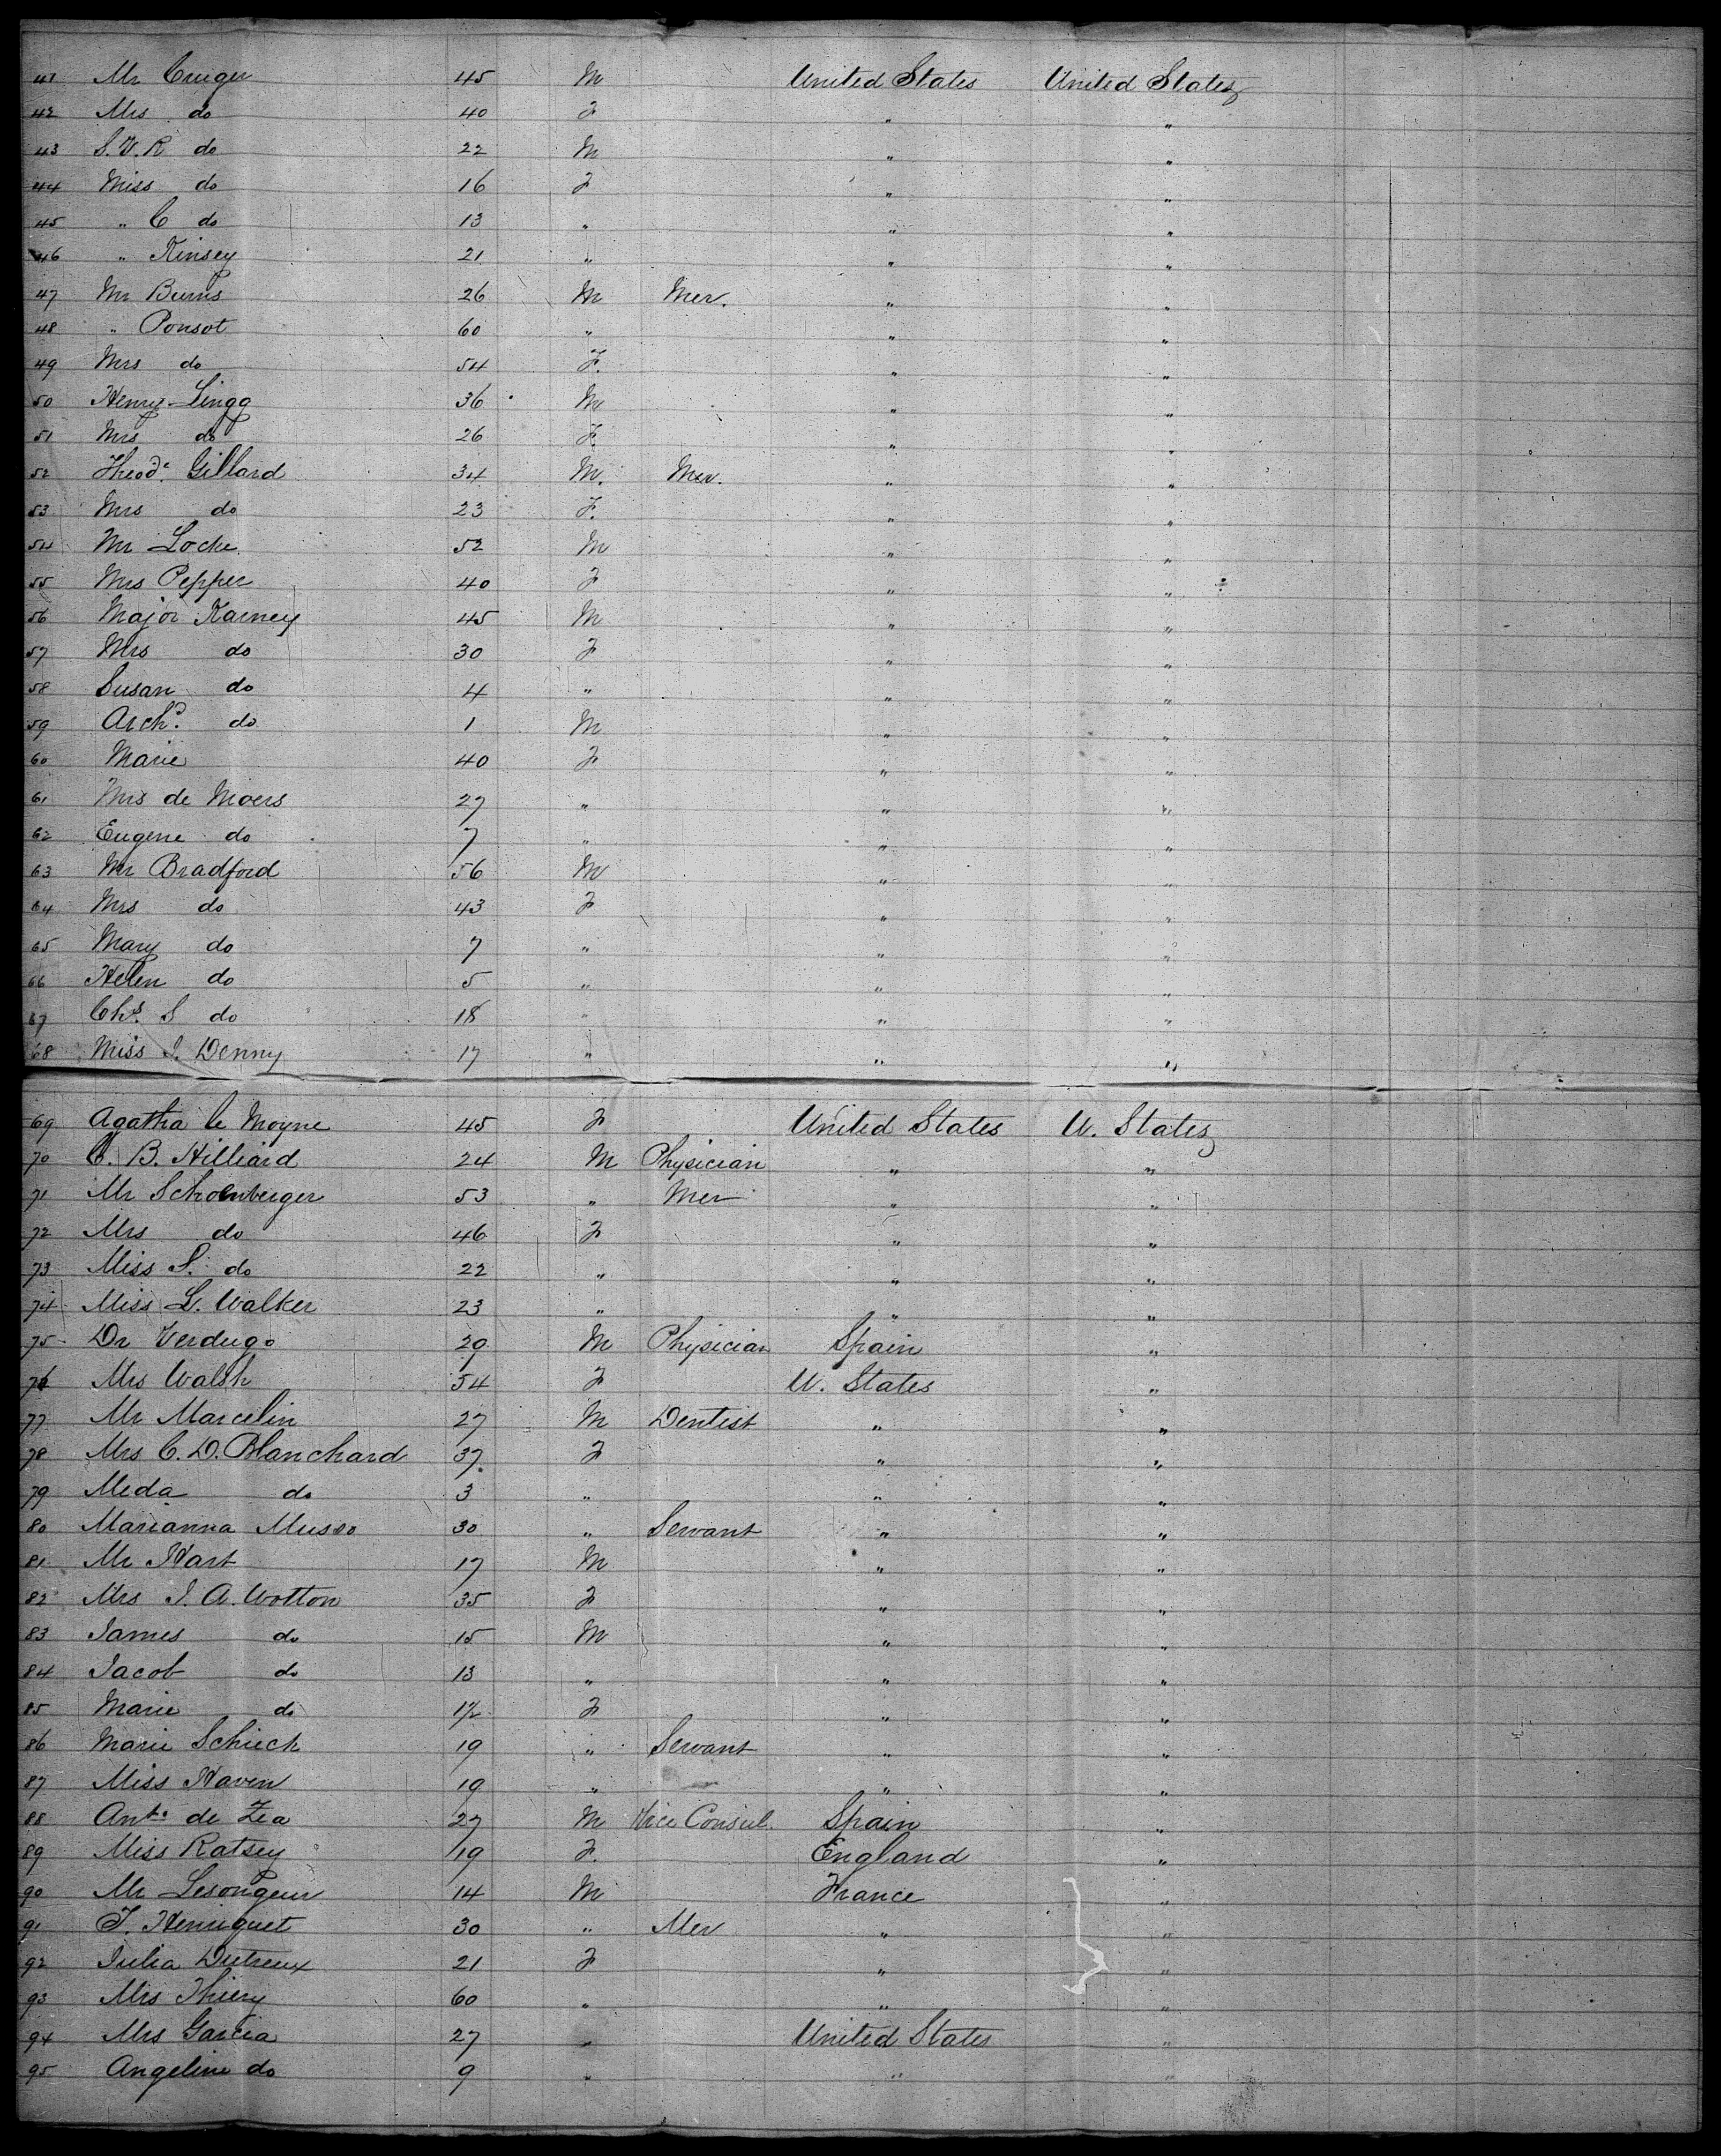 41 Mr Cruger 45 M United States United States
42 Mrs do 40 F " "
43 S.V.R do 22 M " "
44 Miss do 16 F " "
45 " C do 13 " " "
46 " Kinsey 21 " " "
47 Mr Burns 26 M Mer. " "
48 " Ponsot 60 " " "
49 Mrs do 54 F. " "
50 Henry Lingg 36 M " "
51 Mrs do 26 F. " "
52 Theod. Gillard 34 M. Mer. " "
53 Mrs do 23 F. " "
54 Mr Locke 52 M " "
55 Mrs Pepper 40 F " "
56 Major Karney 45 M " "
57 Mrs do 30 F " "
58 Susan do 4 " " "
59 Archd. do 1 M " "
60 Marie 40 F " "
61 Mrs de Moers 27 " " "
62 Eugene do 7 " " "
63 Mr Bradford 56 M " "
64 Mrs do 43 F " "
65 Mary do 7 " " "
66 Helen do 5 " " "
67 Chs. S do 18 " " "
68 Miss I. Denny 17 " " "
69 Agatha le Moyne 45 F United States U. States
70 C. B. Hilliard 24 M Physician " "
71 Mr Schoenberger 53 " Mer " "
72 Mrs do 46 F " "
73 Miss S. do 22 " " "
74 Miss L. Walker 23 " " "
75 Dr Verdugo 29 M Physician Spain "
76 Mrs Walsh 54 F U. States "
77 Mr Marcelin 27 M Dentist " "
78 Mrs C. D. Blanchard 37. F " "
79 Meda do 3 " " "
80 Marianna Musso 30 " Servant " "
81 Mr Hart 17 M " "
82 Mrs I. A. Wotton 35 F " "
83 James do 15 M " "
84 Jacob do 13 " " "
85 Marie do 1½ F " "
86 Marie Schieck 19 " Servant " "
87 Miss Haven 19 " " "
88 Anto. de Zea 27 M Vice Consul. Spain "
89 Miss Ratsey 19 F. England "
90 Mr Lesongeur 14 M France "
91 T. Heniquet 30 " Mer " "
92 Julia Dutreux 21 F " "
93 Mrs Thiery 60 " " "
94 Mrs Garcia 27 " United States "
95 Angeline do 9 " " "